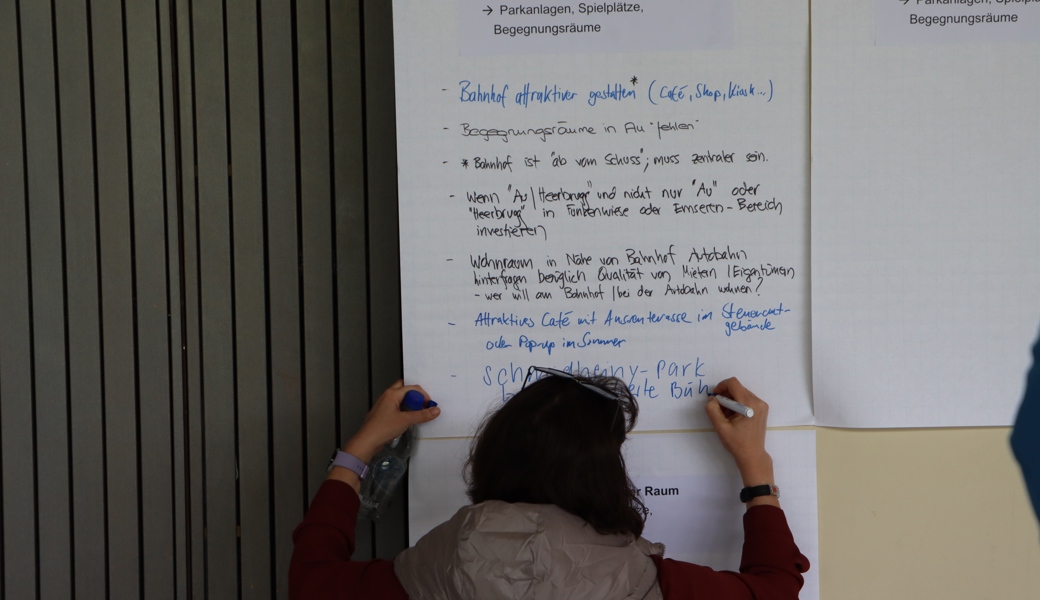 → Parkanlagen, Spielplätze,
Begegnungsräume
- Bahnhof attraktiver gestalten * (Café, Shop, Kiosk...)
- Begegnungsräume in Au "fehlen"
- * Bahnhof ist "ab vom Schuss"; muss zentraler sein.
- Wenn "Au/Heerbrugg" und nicht nur "Au" oder
"Heerbrugg" in Funkenwiese oder Emseren-Bereich
investieren
- Wohnraum in Nähe von Bahnhof Autobahn
hinterfragen bezüglich Qualität von Mietern/Eigentümern
- wer will am Bahnhof/bei der Autobahn wohnen?
- Attraktives Café mit Aussenterrasse im Steueramt-
gebäude
oder Pop-up im Sommer
- -park
Büh
Raum
→ Parkanlagen,
Begegnungsräume